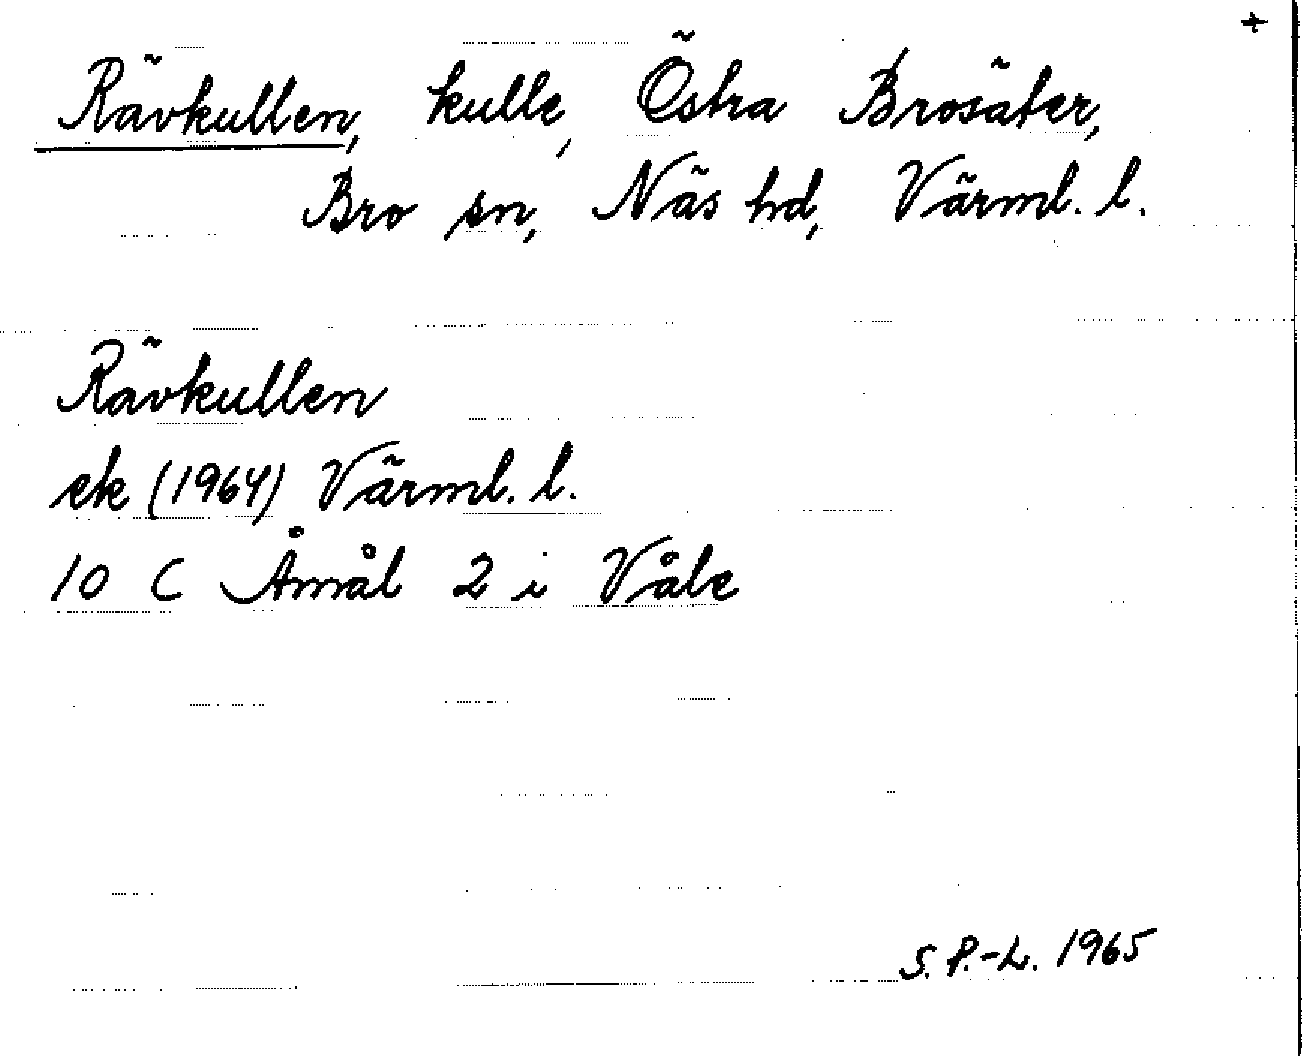 +
Rävkullen, kulle, Östra Brosäter,
Bro sn, Näs hd, Värml. l.
Rävkullen
ek (1964) Värml. l.
10 C Åmål 2 i Våle
S. P.-L. 1965